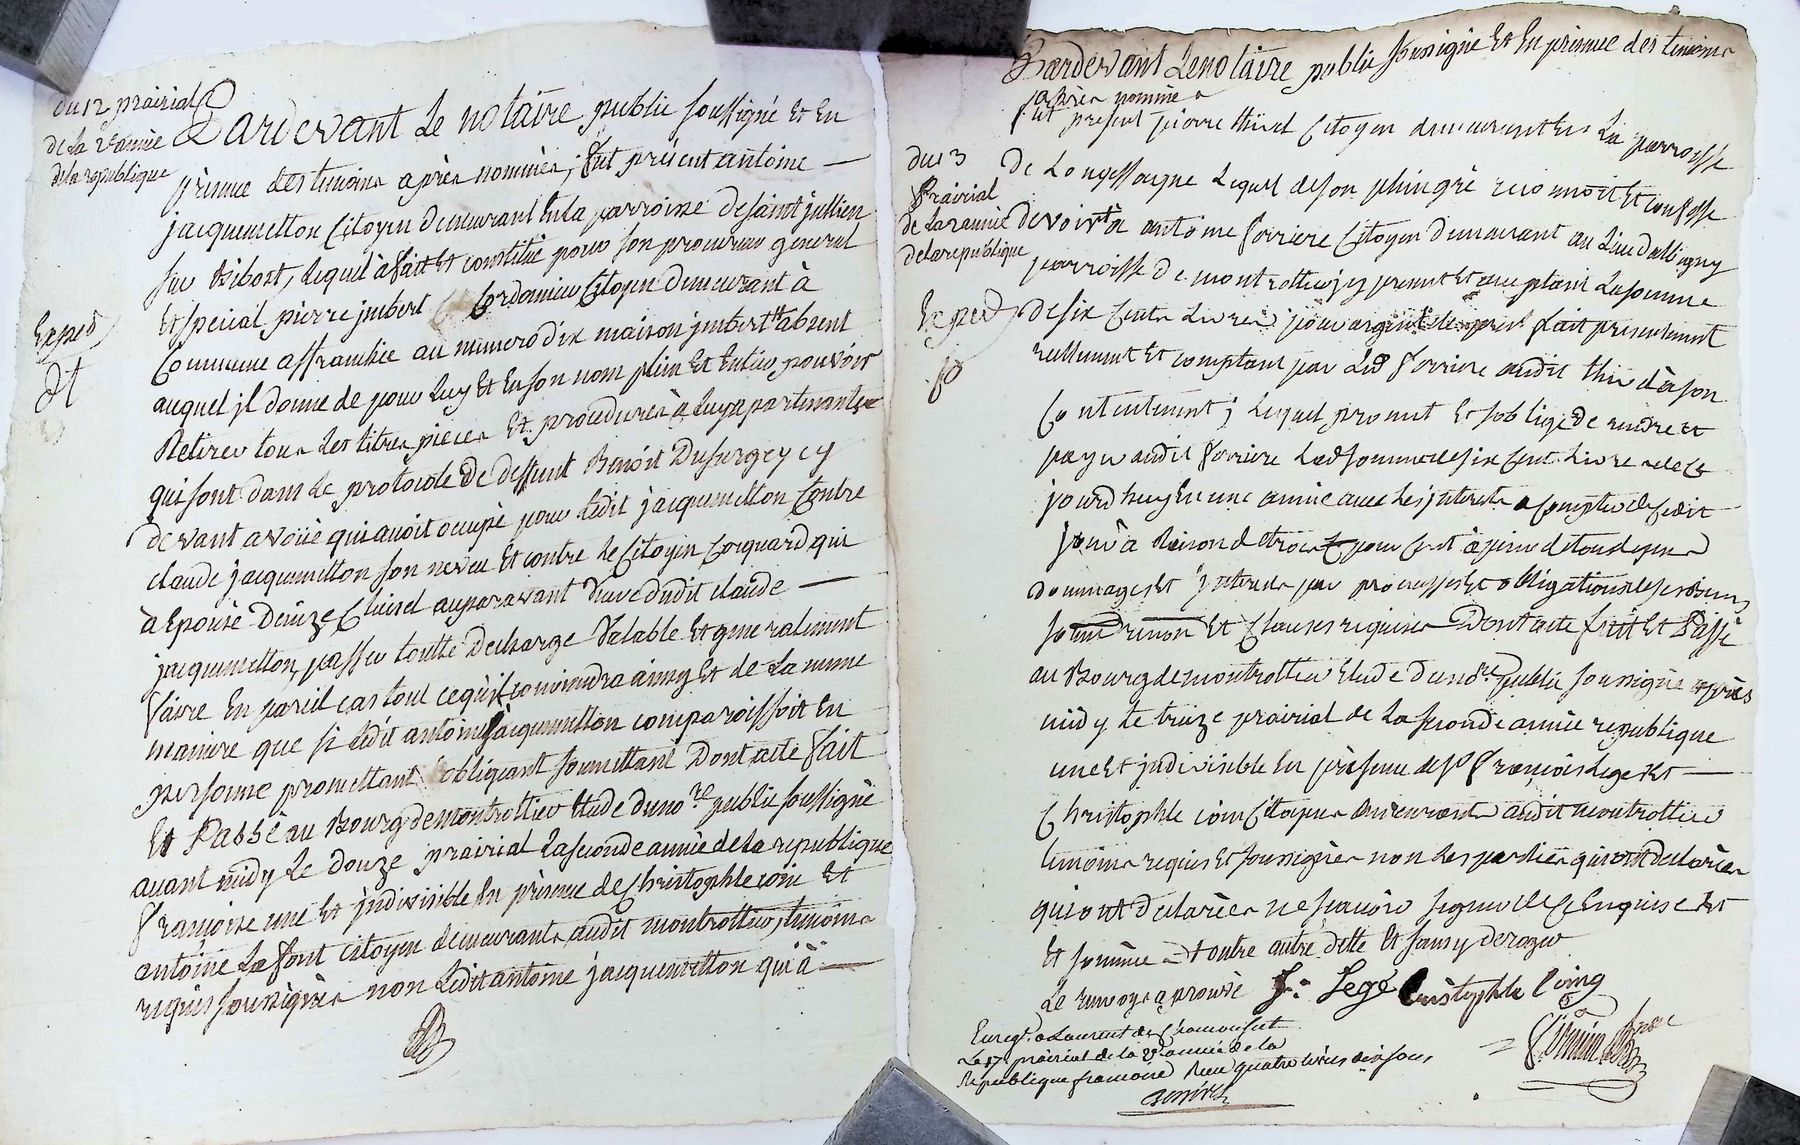 du 12 prairial
de la 2e année
de la republique
Exped
dt
Pardevant Le notaire public soussigné Et En
presence des temoins après nommés, fut présent antoine
jacquemetton Citoyen demeurant En la parroisse de saint jullien
sur bibost, lequel à fait Et constitué pour son procureur general
Et special pierre jmbert Cordonnier Citoyen demeurant à
Commune affranchie au numero dix maison jmbert absent
auquel jl donne de pour luy Et En son nom plein Et Entier pouvoir
Retirer tous les titres pieces Et procedures à luy apartenantes
qui sont dans le protocole de deffunt Benoit Dusurgey cy
devant avoüé qui avoit occupé pour ledit jacquemetton Contre
claude jacquemetton son neveu Et contre le Citoyen Coquard qui
à Epousé Clairel auparavant veuve dudit claude
jacquemetton, passer toutte decharge valable Et generalement
faire En pareil cas tout ce qu'il conviendra ainsy Et de la meme
maniere que si ledit antoine jacquemetton comparoissoit En
personne promettant obligeant soumettant Dont acte fait
Et Passé au Bourg de montrottier Etude du nore public soussigné
avant midy le douze prairial la seconde année de la republique
françoise une Et jndivisible En présence de Christophle coin Et
antoine Lafont citoyens demeurants audit montrottier, temoins
requis soussignés non ledit antoine jacquemetton qui à
du 13
Prairial
de la 2 année
de la republique
Exped
Pardevant Le notaire public soussigné Et En presence des temoins
après nommés
fut present pierre thivel Citoyen demeurant En La parroisse
de Longessaigne Lequel de son plein gré reconnoit Et confesse
devoir à antoine ferriere Citoyen demeurant au Lieu dalbigny
parroisse de montrottier jcy present Et acceptant La somme
de six Cents Livres pour argent de pret fait presentement
reellement Et comptant par Led ferriere audit thivel à son
Contentement ; Lequel promet Et soblige de rendre Et
payer audit ferriere Lad somme de six Cent Livres de Ce
jourdhuy En une année avec Les jnterets a Compter de Cedit
jour à Raison de trois pour Cent à peine de tous depens
dommages Et jnterets par promesses Et obligations de ses biens
soumis renon Et Clauses requises Dont acte fait Et Passé
au Bourg de montrottier Etude du nore public soussigné après
midy le treize prairial de La seconde année republique
une Et jndivisible En présence de sr françois Legé Et
Christophle coin Citoyens demeurants audit montrottier
temoins requis Et soussignés non Les parties qui ont declarées
qui ont declarées ne savoir signer de Ce Enquises Et
Et sommées
Le renvoye aprouvé f: Legé Cristophle Coing
Enregt. a Laurent de Chamousset
Le 17 prairial de la 2e année de la
Republique francoise Reçu quatre livres dix sous